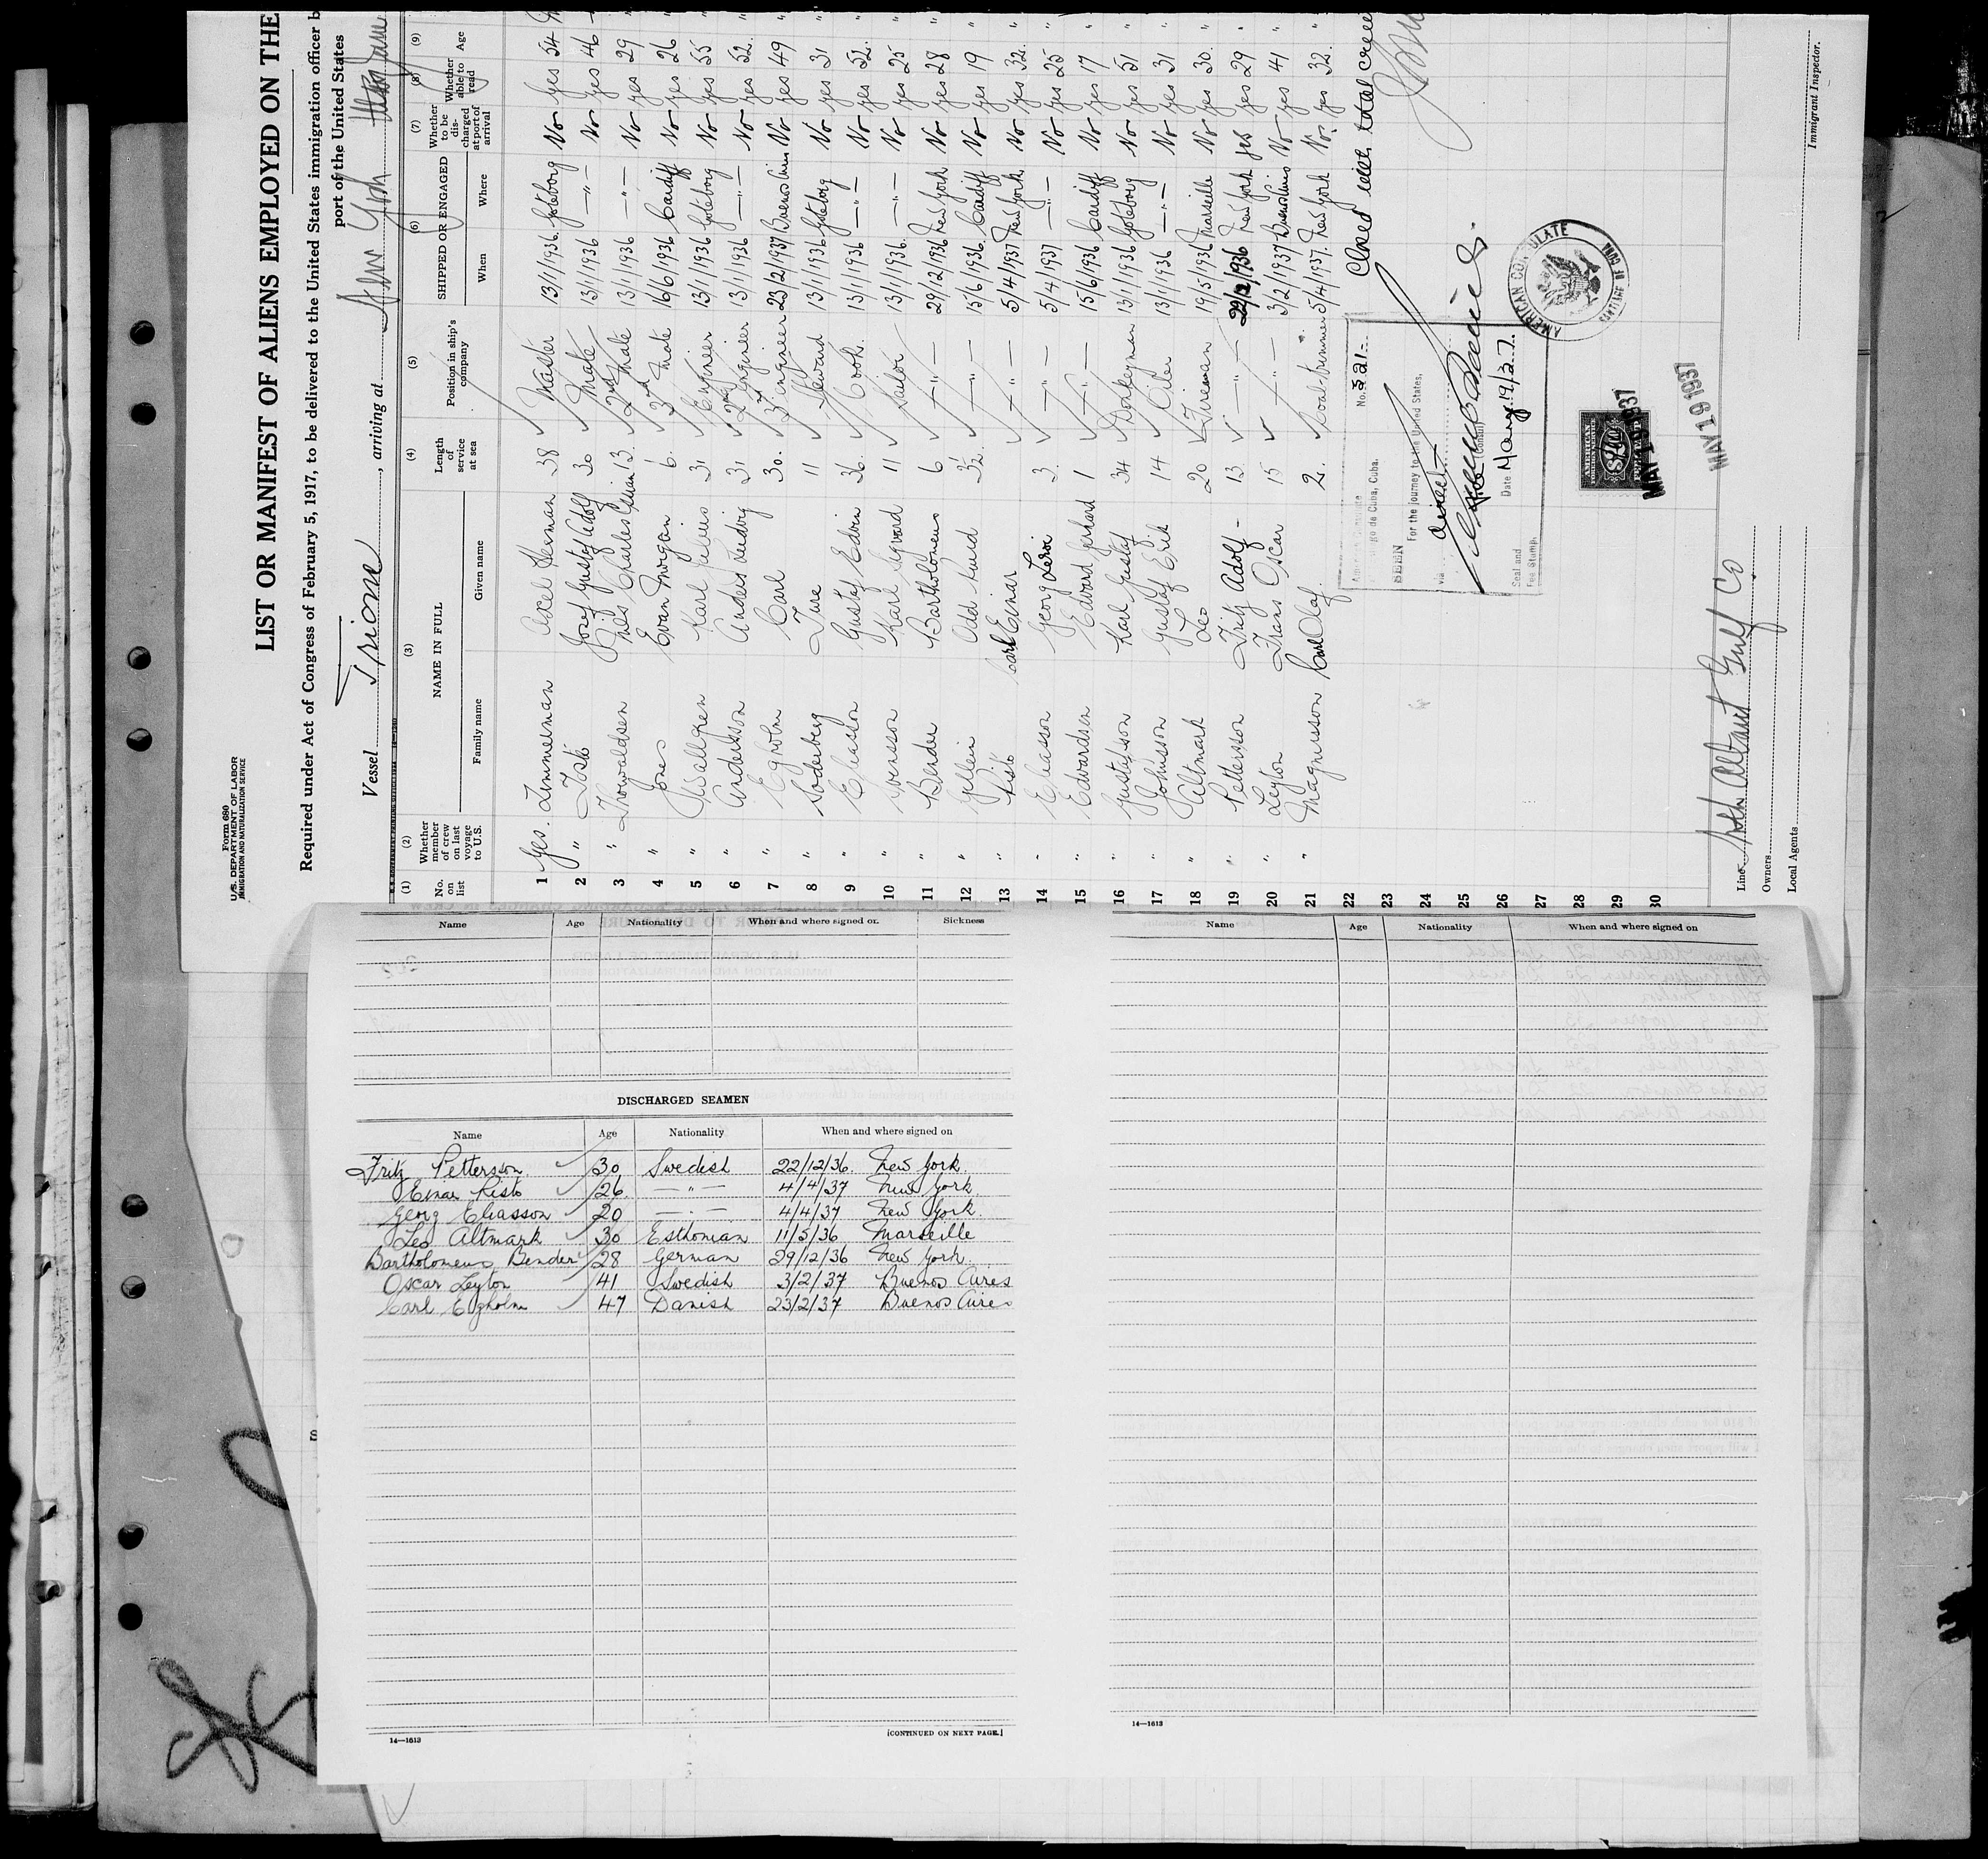 Form 680
U.S. DEPARTMENT OF LABOR
IMMIGRATION AND NATURALIZATION SERVICE
LIST OR MANIFEST OF ALIENS EMPLOYED ON THE
Required under Act of Congress of February 5, 1917, to be delivered to the United States immigration officer b
port of the United States
Vessel Trione, arriving at New York
(1) (2) (3) (4) (5) (6) (7) (8) (9)
No. on list
Whether member of crew on last voyage to U.S.
NAME IN FULL
Family name Given name
Length of service at sea
Position in ship's company
SHIPPED OR ENGAGED
When Where
Whether to be discharged at port of arrival
Whether able to read
Age
1 Yes. Zimmerman Axel Herman 38 Master 13/1/1936. Göteborg No Yes 54
2 " Tosti Josef Gustaf Adolf 30 Mate 13/1/1936 —"— No yes 46
3 " Thorwaldsen Nils Charles 13. 2nd Mate 13/1/1936 —"— No yes 29 "
4 " Jones Evan Morgan 6. 3rd Mate 16/6/1936 Cardiff No yes 26 "
5 " Wallgren Karl Julius 31 Engineer 13/1/1936 Göteborg No yes 55 "
6 " Andersson Anders Ludvig 31 2nd Engineer 13/1/1936 —"— No yes 52. "
7 " Egholm Carl 30. 3rd engineer 23/2/1937 Buenos Aires No yes 49 "
8 " Soderberg Ture 11 Steward 13/1/1936 Göteborg No yes 31 "
9 " Eliasson Gustaf Edvin 36. Cook. 13/1/1936 —"— No yes 52. "
10 " Svensson Karl Sigvard 11 Sailor 13/1/1936. —"— No yes 25 "
11 " Bender Bartholomeus 6 —"— 29/12/1936 New York No yes 28 "
12 " Gellein Odd Lurd 3½. —"— 15/6/1936. Cardiff No yes 19 "
13 " Risto Carl Einar —"— 5/4/1937 New York No yes 32. "
14 " Eliasson Georg Leroi 3. —"— 5/4/1937 —"— No yes 25 "
15 " Edvardsen Edvard Gerhard 1 —"— 15/6/1936 Cardiff No yes 17 "
16 " Gustafsson Karl Gustaf 34 Donkeyman 13/1/1936 Göteborg No yes 51 "
17 " Johnsson Gustaf Erik 14 Oiler 13/1/1936 —"— No yes 31 "
18 " Altmark Leo 20 Fireman 19/5/1936 Marseille No yes 30. "
19 " Pettersson Fritz Adolf - 13 —"— 22/12/1936 New York yes yes 29 "
20 " Leyton Frans Oscar 15 —"— 3/2/1937 Buenos Aires No yes 41 "
21 " Magnusson Carl Olaf. 2. Coal-trimmer 5/4/1937. New York No. yes 32. "
22
23
24
25
26
27
28
29
30
Closed with total crew
No. 521.-
go de Cuba, Cuba.
SEEN
For the journey to the United States,
via direct
Date May 19/37.
Seal and
Fee Stamp.
AMERICAN CONSULATE
AMERICAN FOREIGN SERVICE
MAY 19 1937
MAY 19 1937
Line
Gulf Co
Owners
Local Agents
Immigrant Inspector.
Name Age Nationality When and where signed on. Sickness
DISCHARGED SEAMEN
Name Age Nationality When and where signed on
Fritz Pettersson 30 Swedish 22/12/36. New York.
Einar Risto 26. —"— 4/4/37 New York.
Georg Eliasson 20 —"— 4/4/37 New York.
Leo Altmark 30 Esthonian 11/5/36 Marseille
Bartholomeus Bender 28 German 29/12/36 New York
Oscar Leyton 41 Swedish 3/2/37 Buenos Aires
Carl Egholm 47 Danish 23/2/37 Buenos Aires
14—1613
[CONTINUED ON NEXT PAGE.]
Name Age Nationality When and where signed on
14—1613